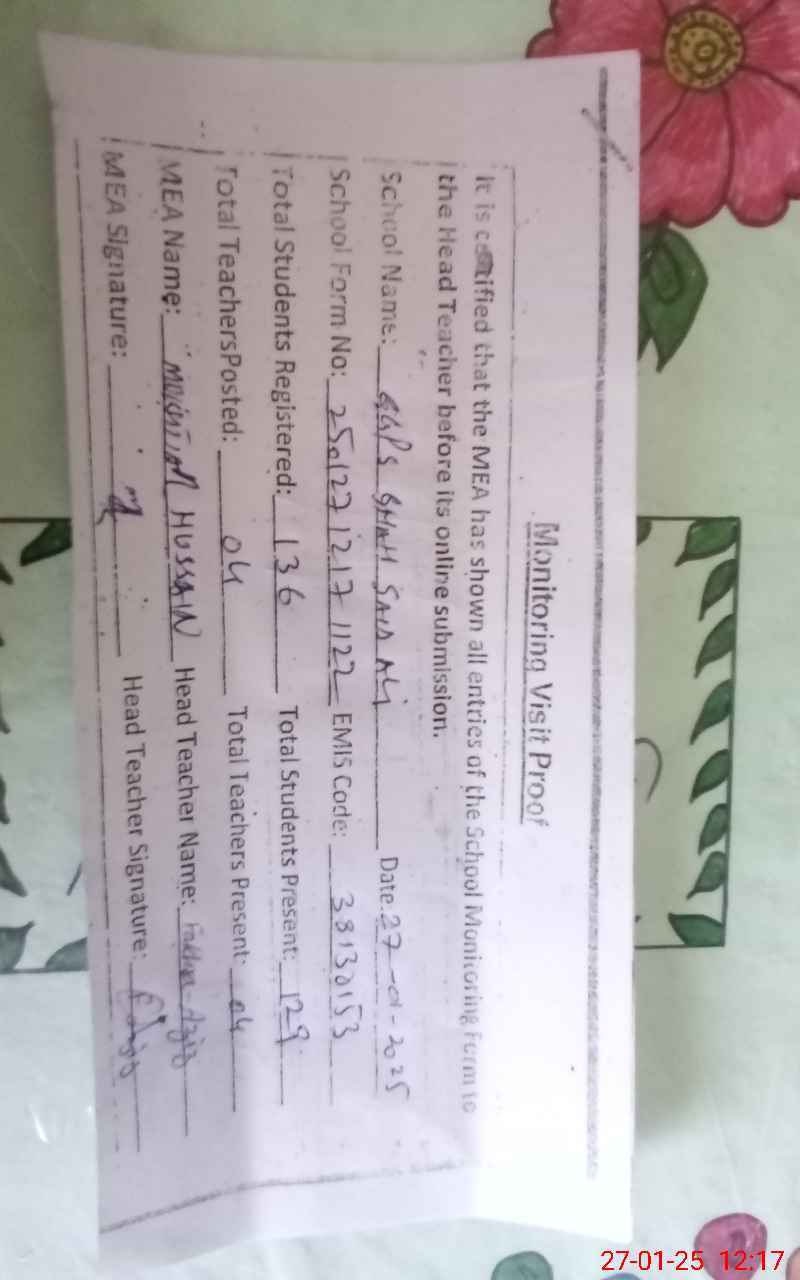 Monitoring Visit Proof
It is certified that the MEA has shown all entries of the School Monitoring Form to
the Head Teacher before its online submission.
School Name: GGPS SHAH SAID ALI Date. 27-01-2025
School Form No: 25012712171122 EMIS Code: 38130153
Total Students Registered: 136 Total Students Present: 129
Total TeachersPosted: 04 Total Teachers Present: 04
MEA Name: HUSSAIN Head Teacher Name:
MEA Signature: Head Teacher Signature:
27-01-25 12:17